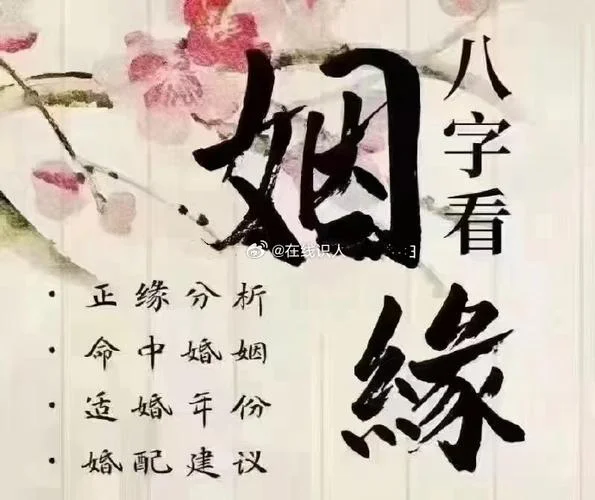 八字看
姻緣
@在线识人
· 正缘分析
· 命中婚姻
· 适婚年份
· 婚配建议